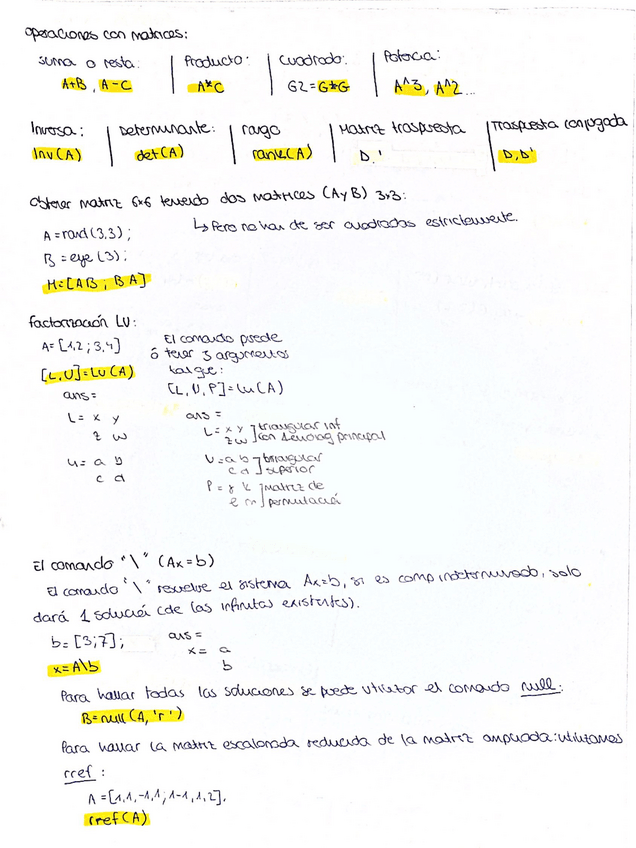 Operaciones con matrices:
Suma o resta: | Producto: | Cuadrado: | Potencia:
A+B, A-C | A*C | G2=G*G | A^3, A^2...
Inversa: | Determinante: | rango | Matriz traspuesta | Traspuesta conjugada
Inv(A) | det(A) | rank(A) | D.' | D, D'
Obtener matriz 6x6 teniendo dos matrices (A y B) 3x3:
A=rand(3,3); ↳ Pero no han de ser cuadradas estrictamente.
B=eye(3);
M=[A B; B A]
factorización LU:
A=[1,2;3,4] El comando puede
ó tener 3 argumentos
[L,U]=Lu(A) tal que:
[L,U,P]=Lu(A)
ans= ans=
L= x y L= x y ] triangular inf
z w z w ] con 1 en diag principal
U= a b U= a b ] triangular
c d c d ] superior
P= y k ] Matriz de
e m ] permutació
El comando "\" (Ax=b)
El comando "\" resuelve el sistema Ax=b, si es comp indeterminado, solo
dará 1 solució (de las infinitas existentes).
b=[3;7]; ans=
x= a
x=A\b b
Para hallar todas las soluciones se puede utilizar el comando null:
B=null(A,'r')
Para hallar la matriz escalonada reducida de la matriz ampliada: utilizamos
rref:
A=[1,1,-1,1;1-1,1,2],
rref(A)